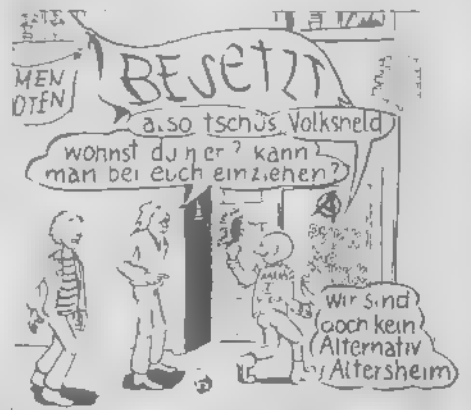 MEN
OTEN
BESETZT
also tschüs, Volksheld
wohnst du hier? kann
man bei euch einziehen?
wir sind
doch kein
Alternativ
Altersheim